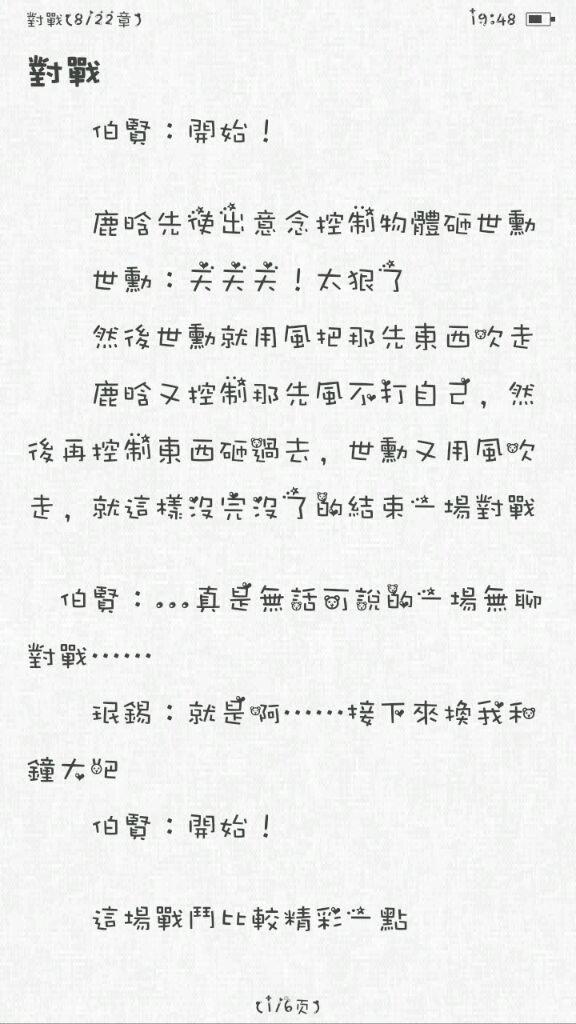 對戰(8/22章)
19:48
對戰
伯賢：開始！
鹿晗先使出意念控制物體砸世勳
世勳：天天天！太狠了
然後世勳就用風把那先東西吹走
鹿晗又控制那先風不打自己，然
後再控制東西砸過去，世勳又用風吹
走，就這樣沒完沒了的結束一場對戰
伯賢：...真是無話可說的一場無聊
對戰……
珉錫：就是啊……接下來換我和
鐘大吧
伯賢：開始！
這場戰鬥比較精彩一點
(1/6页)